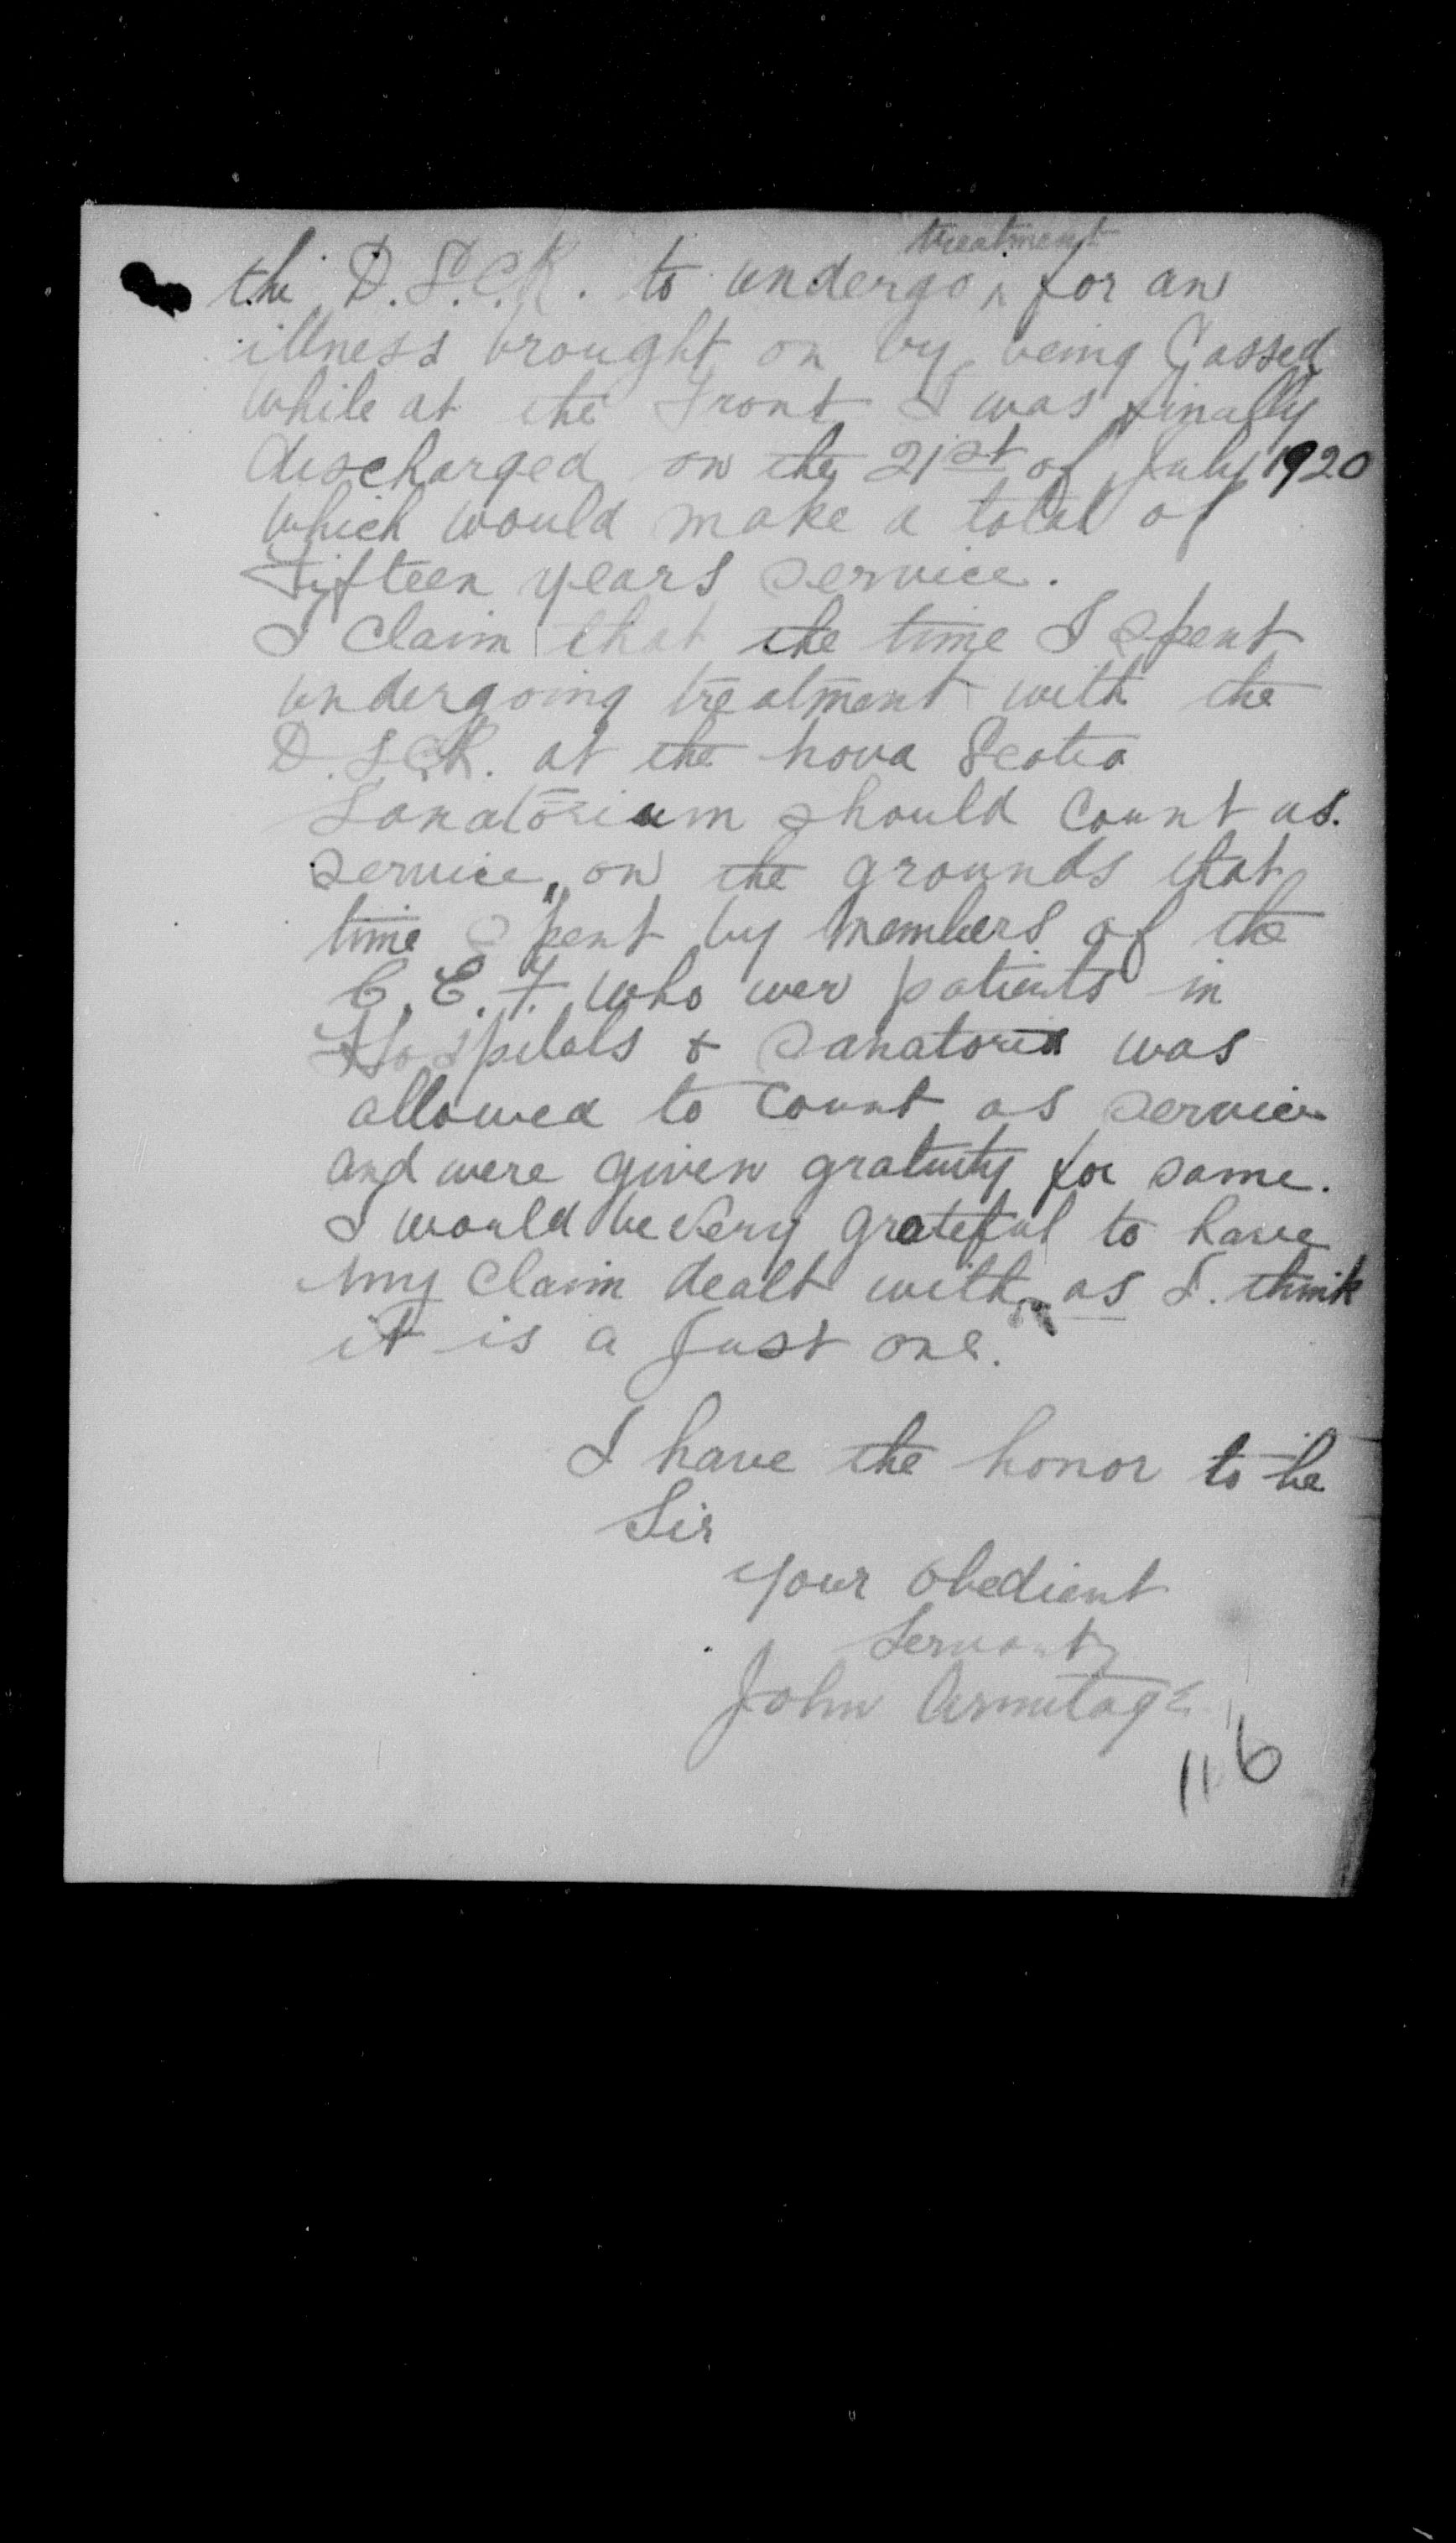 the D.S.C.R. to undergo ^ treatment for an
illness brought on by being Gassed
while at the Front I was finally
discharged on the 21st of July 1920
which would make a total of
Fifteen years service.
I claim that the time I spent
undergoing treatment with the
D.S.C.R. at the Nova Scotia
Sanatorium should count as.
service, on the grounds that
time spent by members of the
C.E.F. who wer patients in
Hospitals & Sanatoria was
allowed to count as service
and were given gratuity for same.
I would be very grateful to have
my claim dealt with as I. think
it is a just one.
I have the honor to be
Sir
your obedient
Servant
John Armitage
116